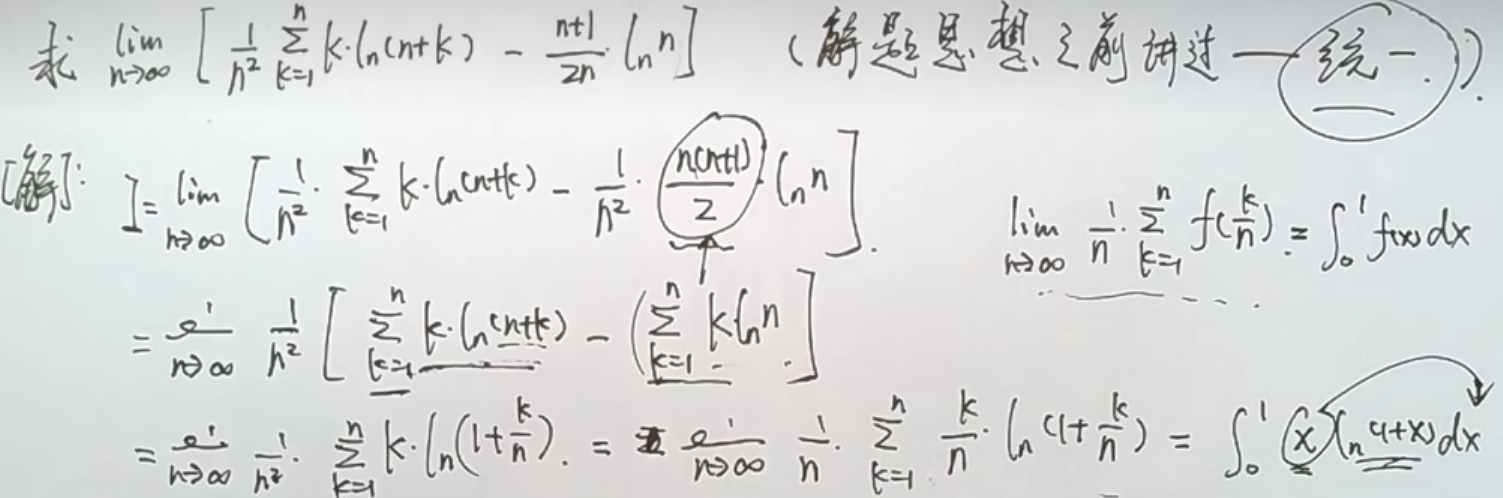 求 lim n→∞ [ 1/n² Σ_{k=1}^{n} k·ln(n+k) − (n+1)/2n · ln n ] (解题思想之前讲过 — 统一.)
[解]: I = lim n→∞ [ 1/n² · Σ_{k=1}^{n} k·ln(n+k) − 1/n² · n(n+1)/2 · ln n ].
lim n→∞ 1/n · Σ_{k=1}^{n} f(k/n) = ∫₀¹ f(x)dx
= n→∞ 1/n² [ Σ_{k=1}^{n} k·ln(n+k) − ( Σ_{k=1}^{n} k ln n ]
= n→∞ 1/n² · Σ_{k=1}^{n} k·ln(1+k/n). = n→∞ 1/n · Σ_{k=1}^{n} k/n · ln(1+k/n) = ∫₀¹ x ln(1+x)dx